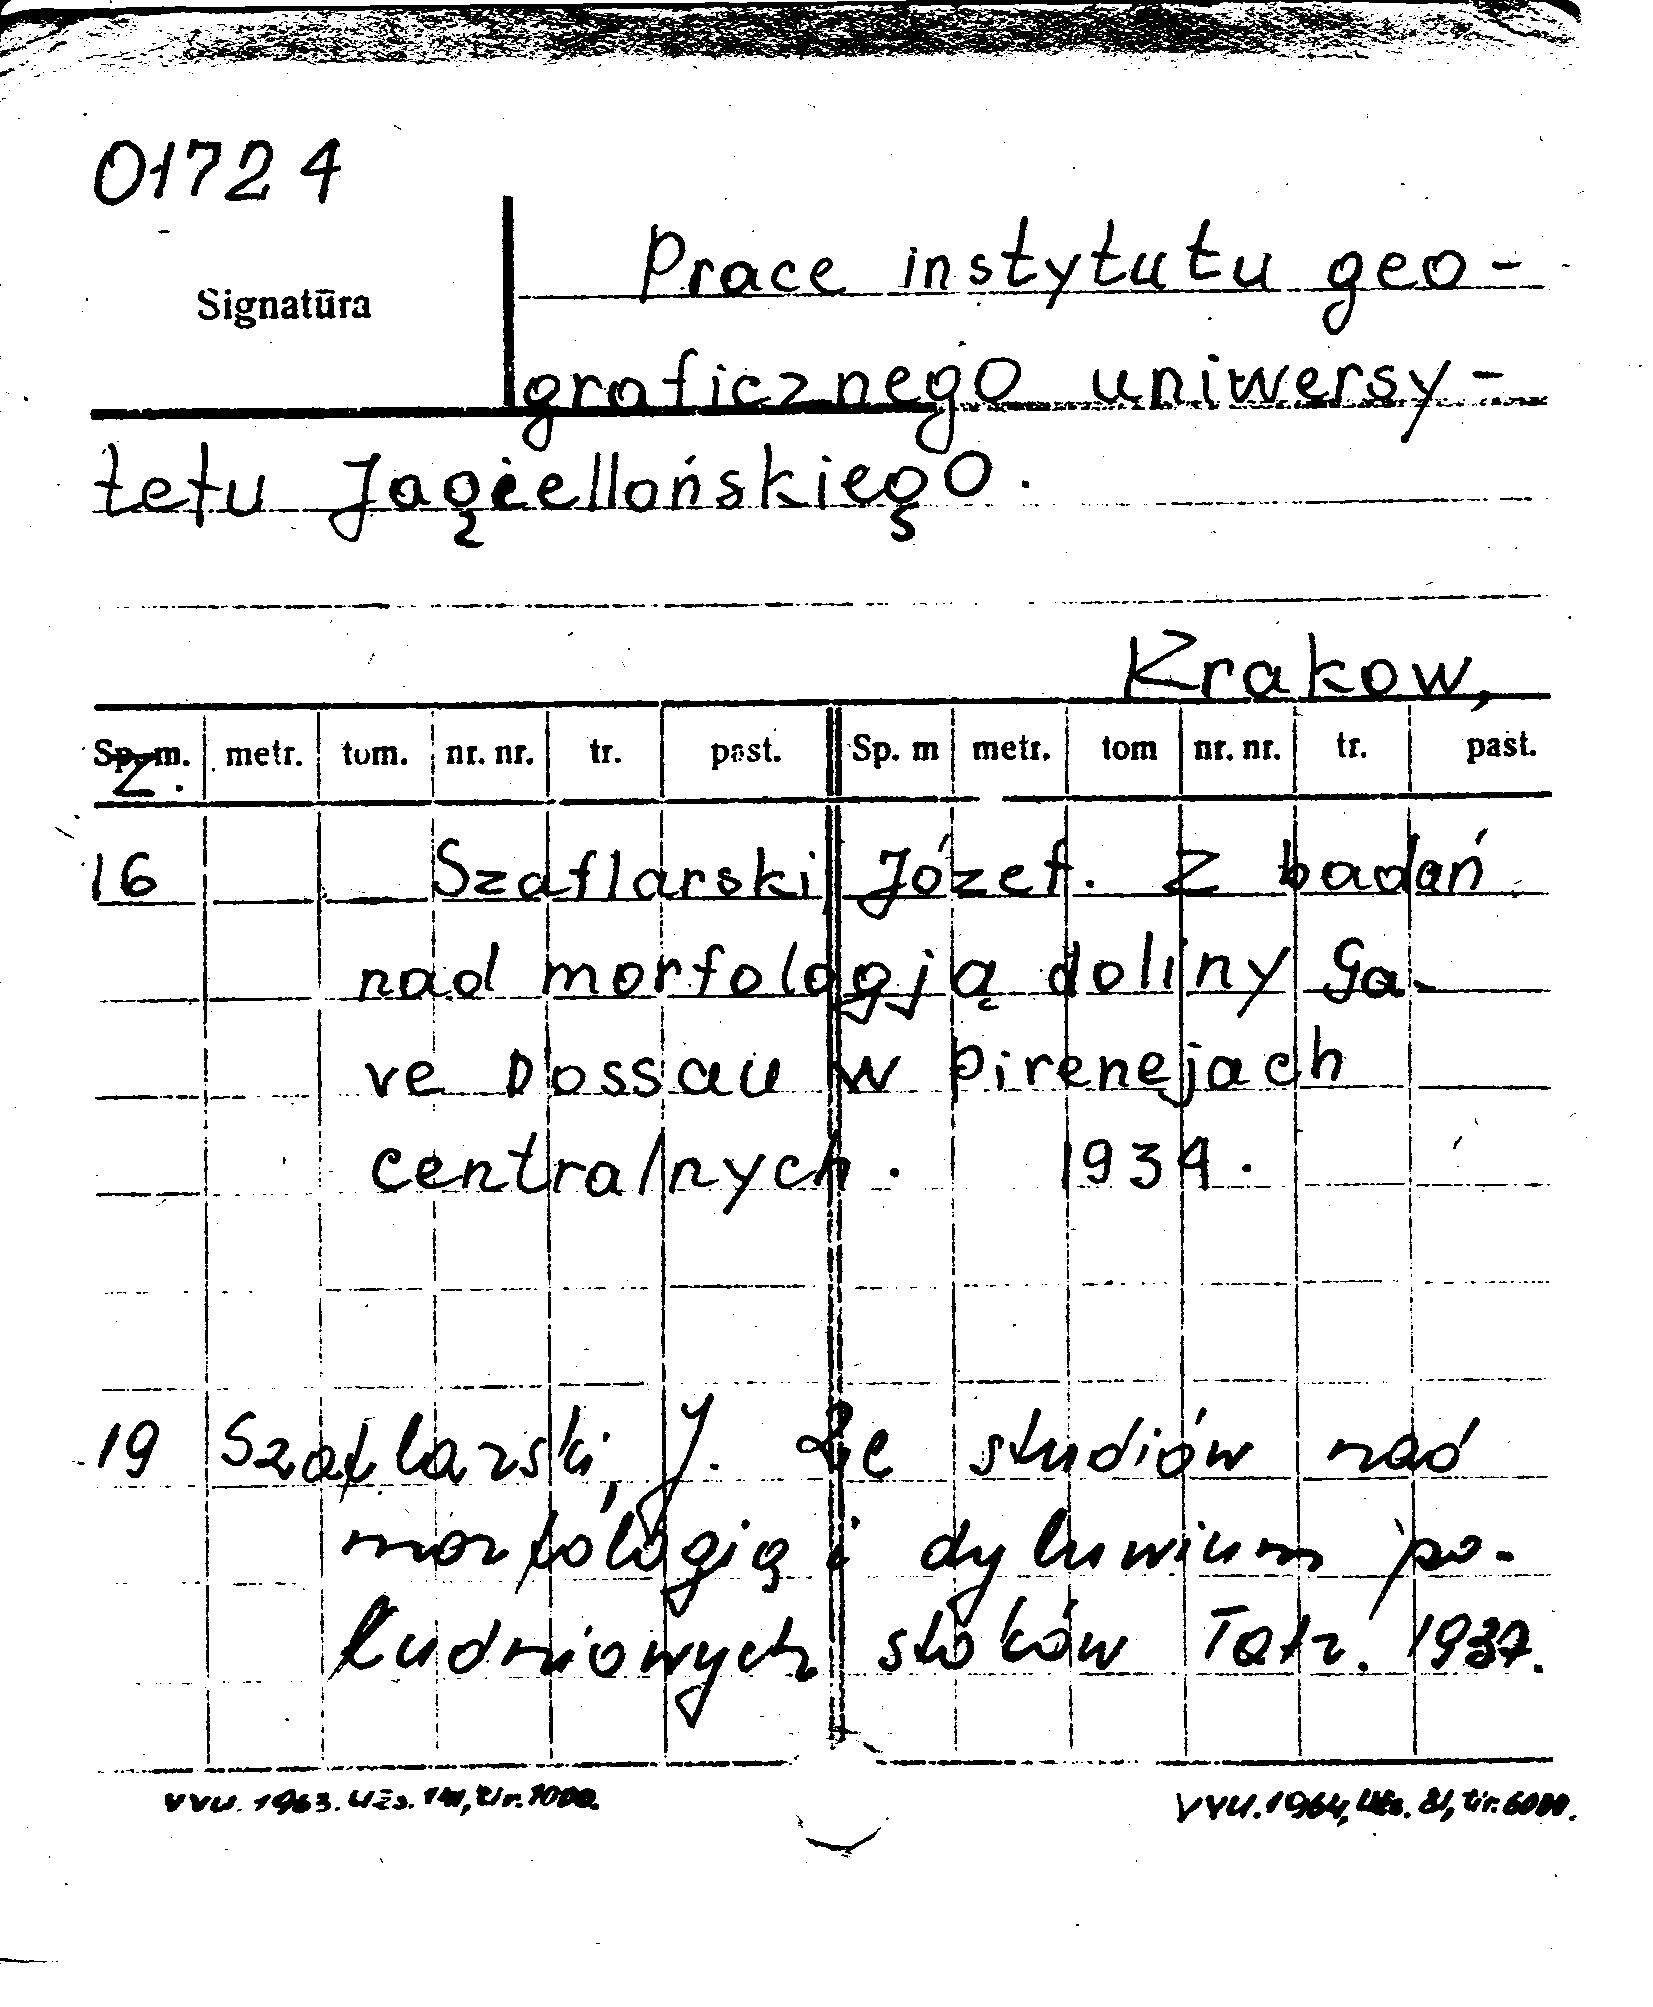 01724
Signatūra
Prace instytutu geo-
graficznego uniwersy-
tetu Jagiellońskiego.
Krakow,
Sp. m. metr. tom. nr. nr. tr. past. Sp. m metr. tom nr. nr. tr. past.
Z.
16 Szaflarski Józef. Z badań
nad morfologją doliny Ga-
ve Dossau w Pirenejach
centralnych. 1934.
19 Szaflarski, J. Ze studiów nad
morfologią i dyluwium po-
łudniowych stoków Tatr. 1937.
VVU. 1963. Užs. 141, tir. 1000. VVU. 1964, Užs. 81, tir. 6000.